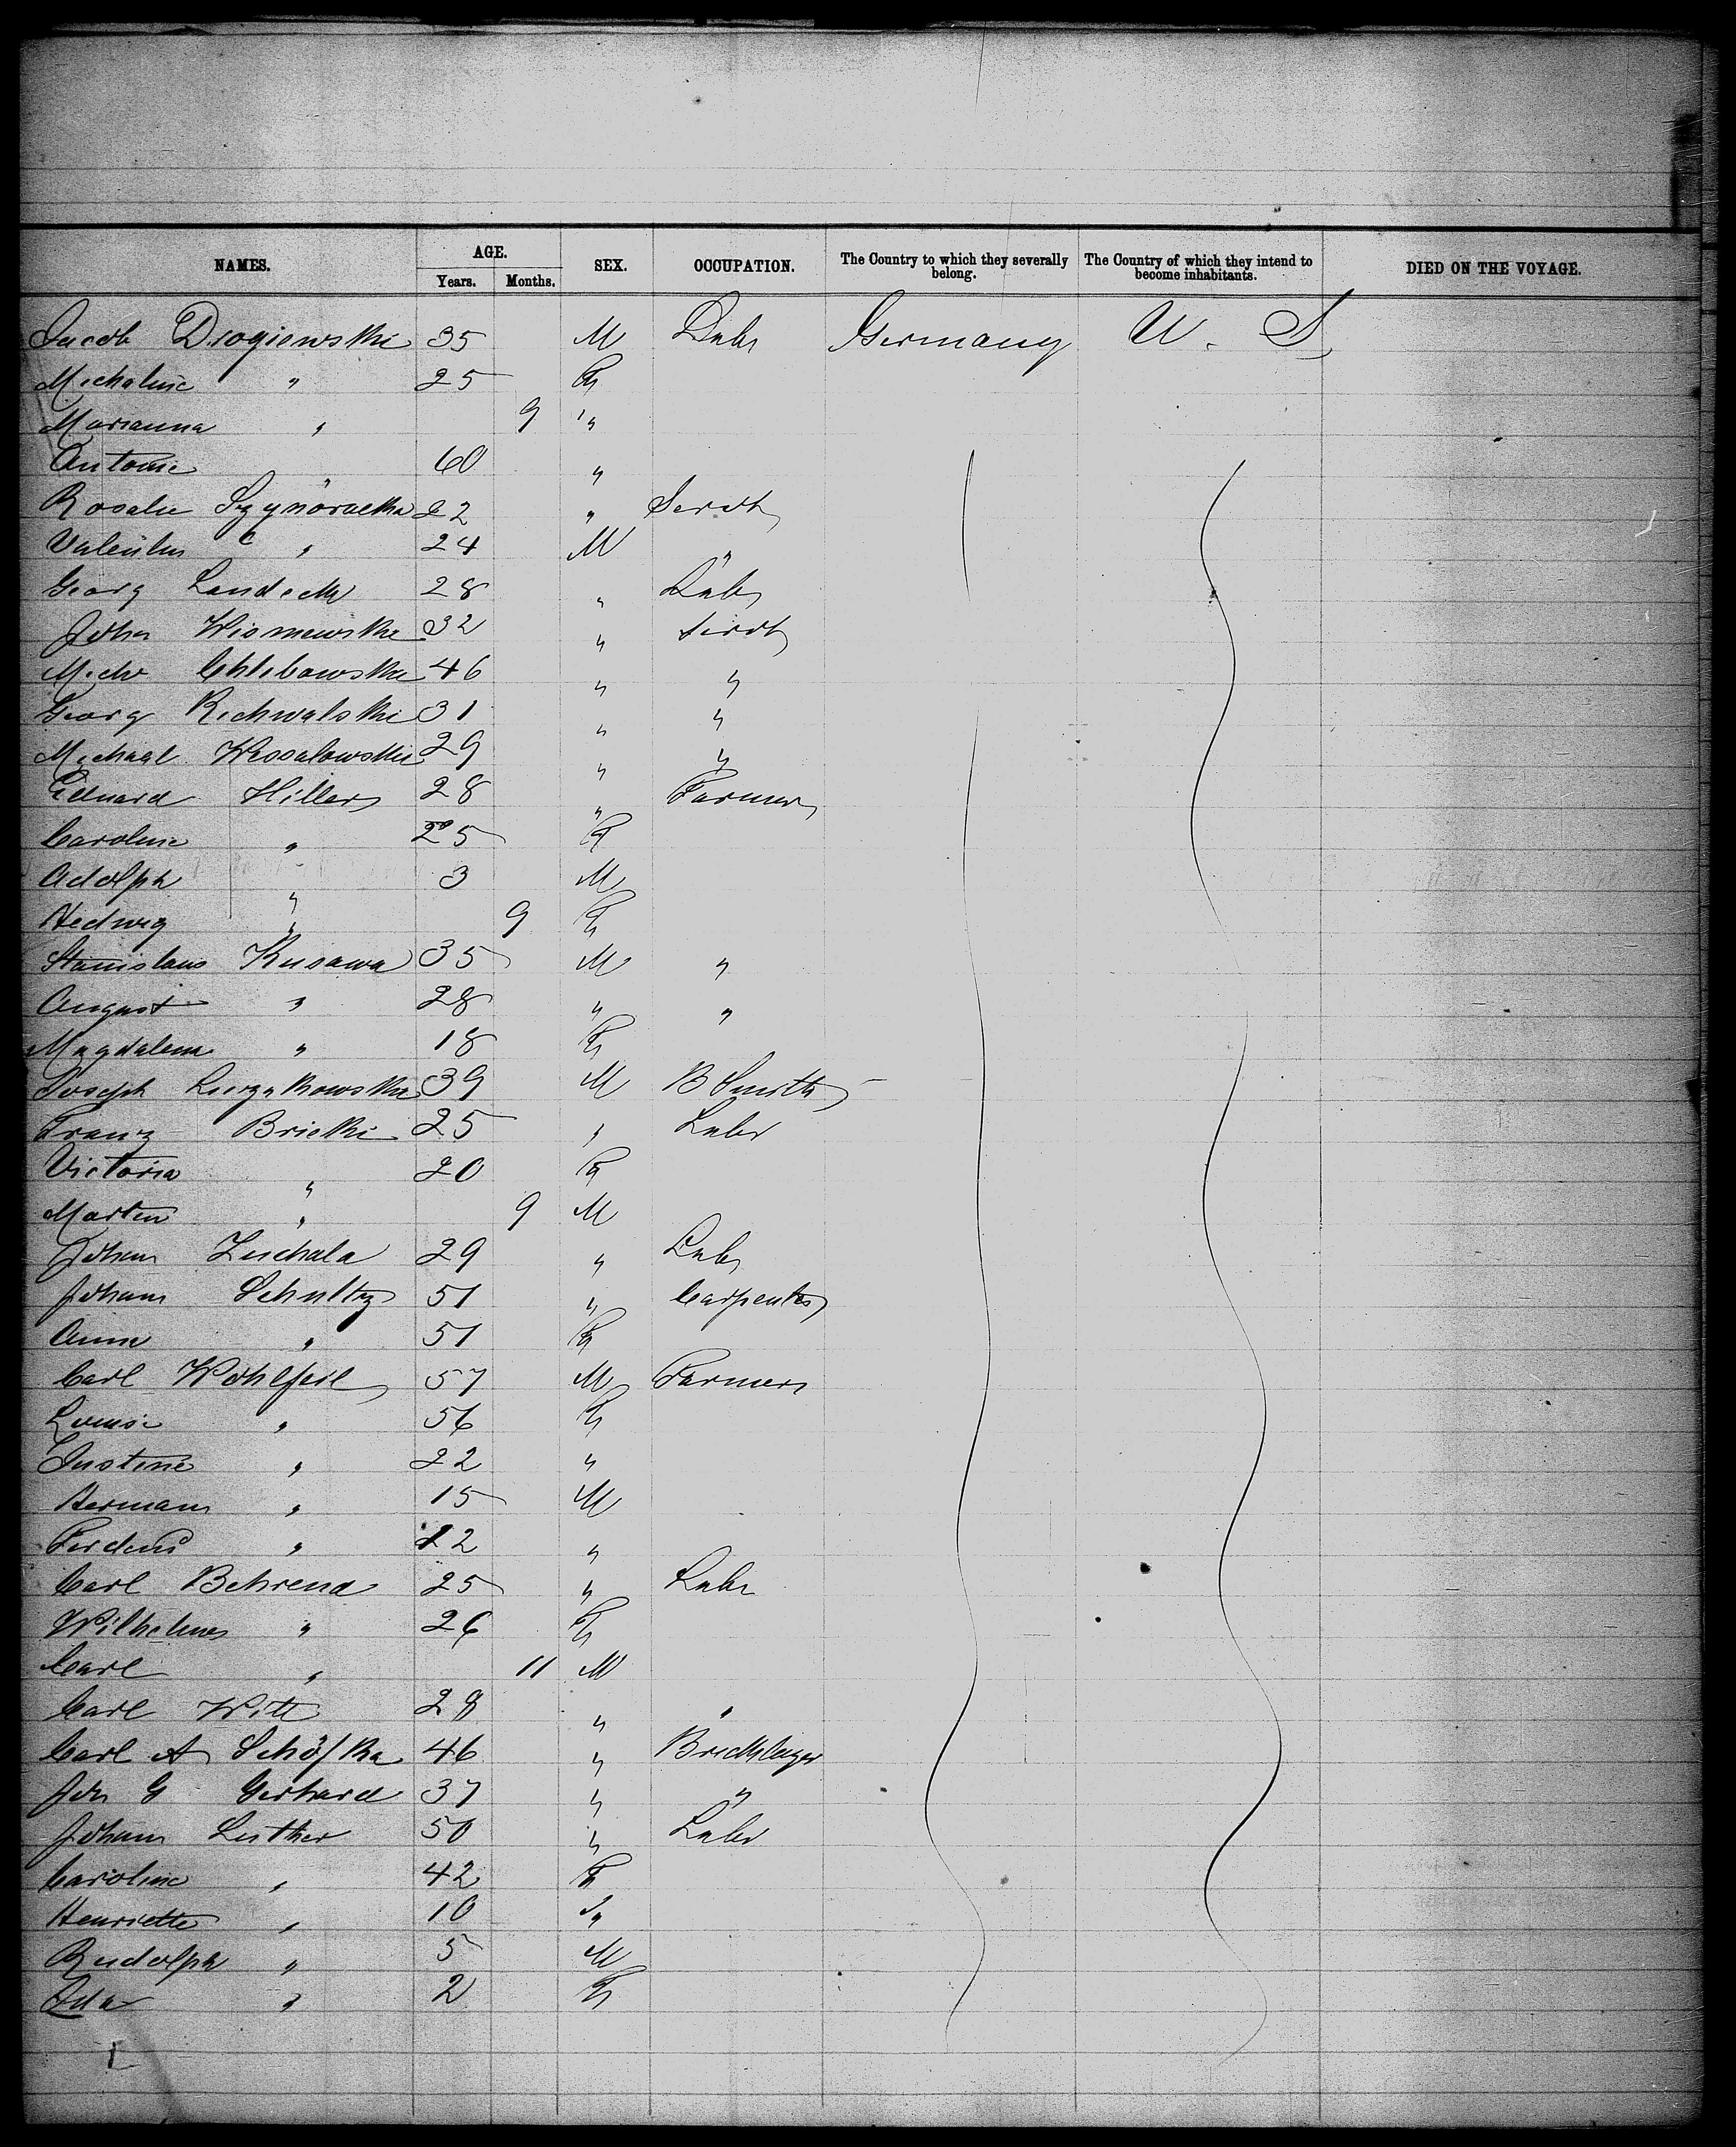 NAMES. AGE. Years. Months. SEX. OCCUPATION. The Country to which they severally belong. The Country of which they intend to become inhabitants. DIED ON THE VOYAGE.
Jacob Drogiewski 35 M Labr Germany U. S.
Michaline " 25 F
Marianna " 9 "
Antonie " 60 "
Rosalie 22 " Servt
Valentin " 24 M "
Georg Landeck 28 " Labr
John Wisniewski 32 " Servt
Mich Chlebowski 46 " "
Georg Richwalski 31 " "
Michael Wessalowski 29 " "
Eduard Hillers 28 " Farmer
Caroline " 25 F
Adolph " 3 M
Hedwig " 9 F
Stanislaus Kusawa 35 M "
August " 28 " "
Magdalena " 18 F
Joseph 39 M B Smith
Franz Bricki 25 " Labr
Victoria " 20 F
Marten " 9 M
Johann Zuchala 29 " Labr
Johann Schultz 51 " Carpenter
Anna " 51 F
Carl Wohlfeil 57 M Farmer
Louise " 56 F
Justine " 22 "
Hermann " 15 M
Ferdend " 12 "
Carl Behrend 25 " Labr
Wilhelmine " 26 F
Carl " 11 M
Carl Witt 28 " "
Carl A Schöfka 46 " Bricklayer
Joh G Gerhard 37 " "
Johann Luther 50 " Labr
Caroline " 42 F
Henriette " 10 "
Rudolph " 5 M
Ida " 2 F